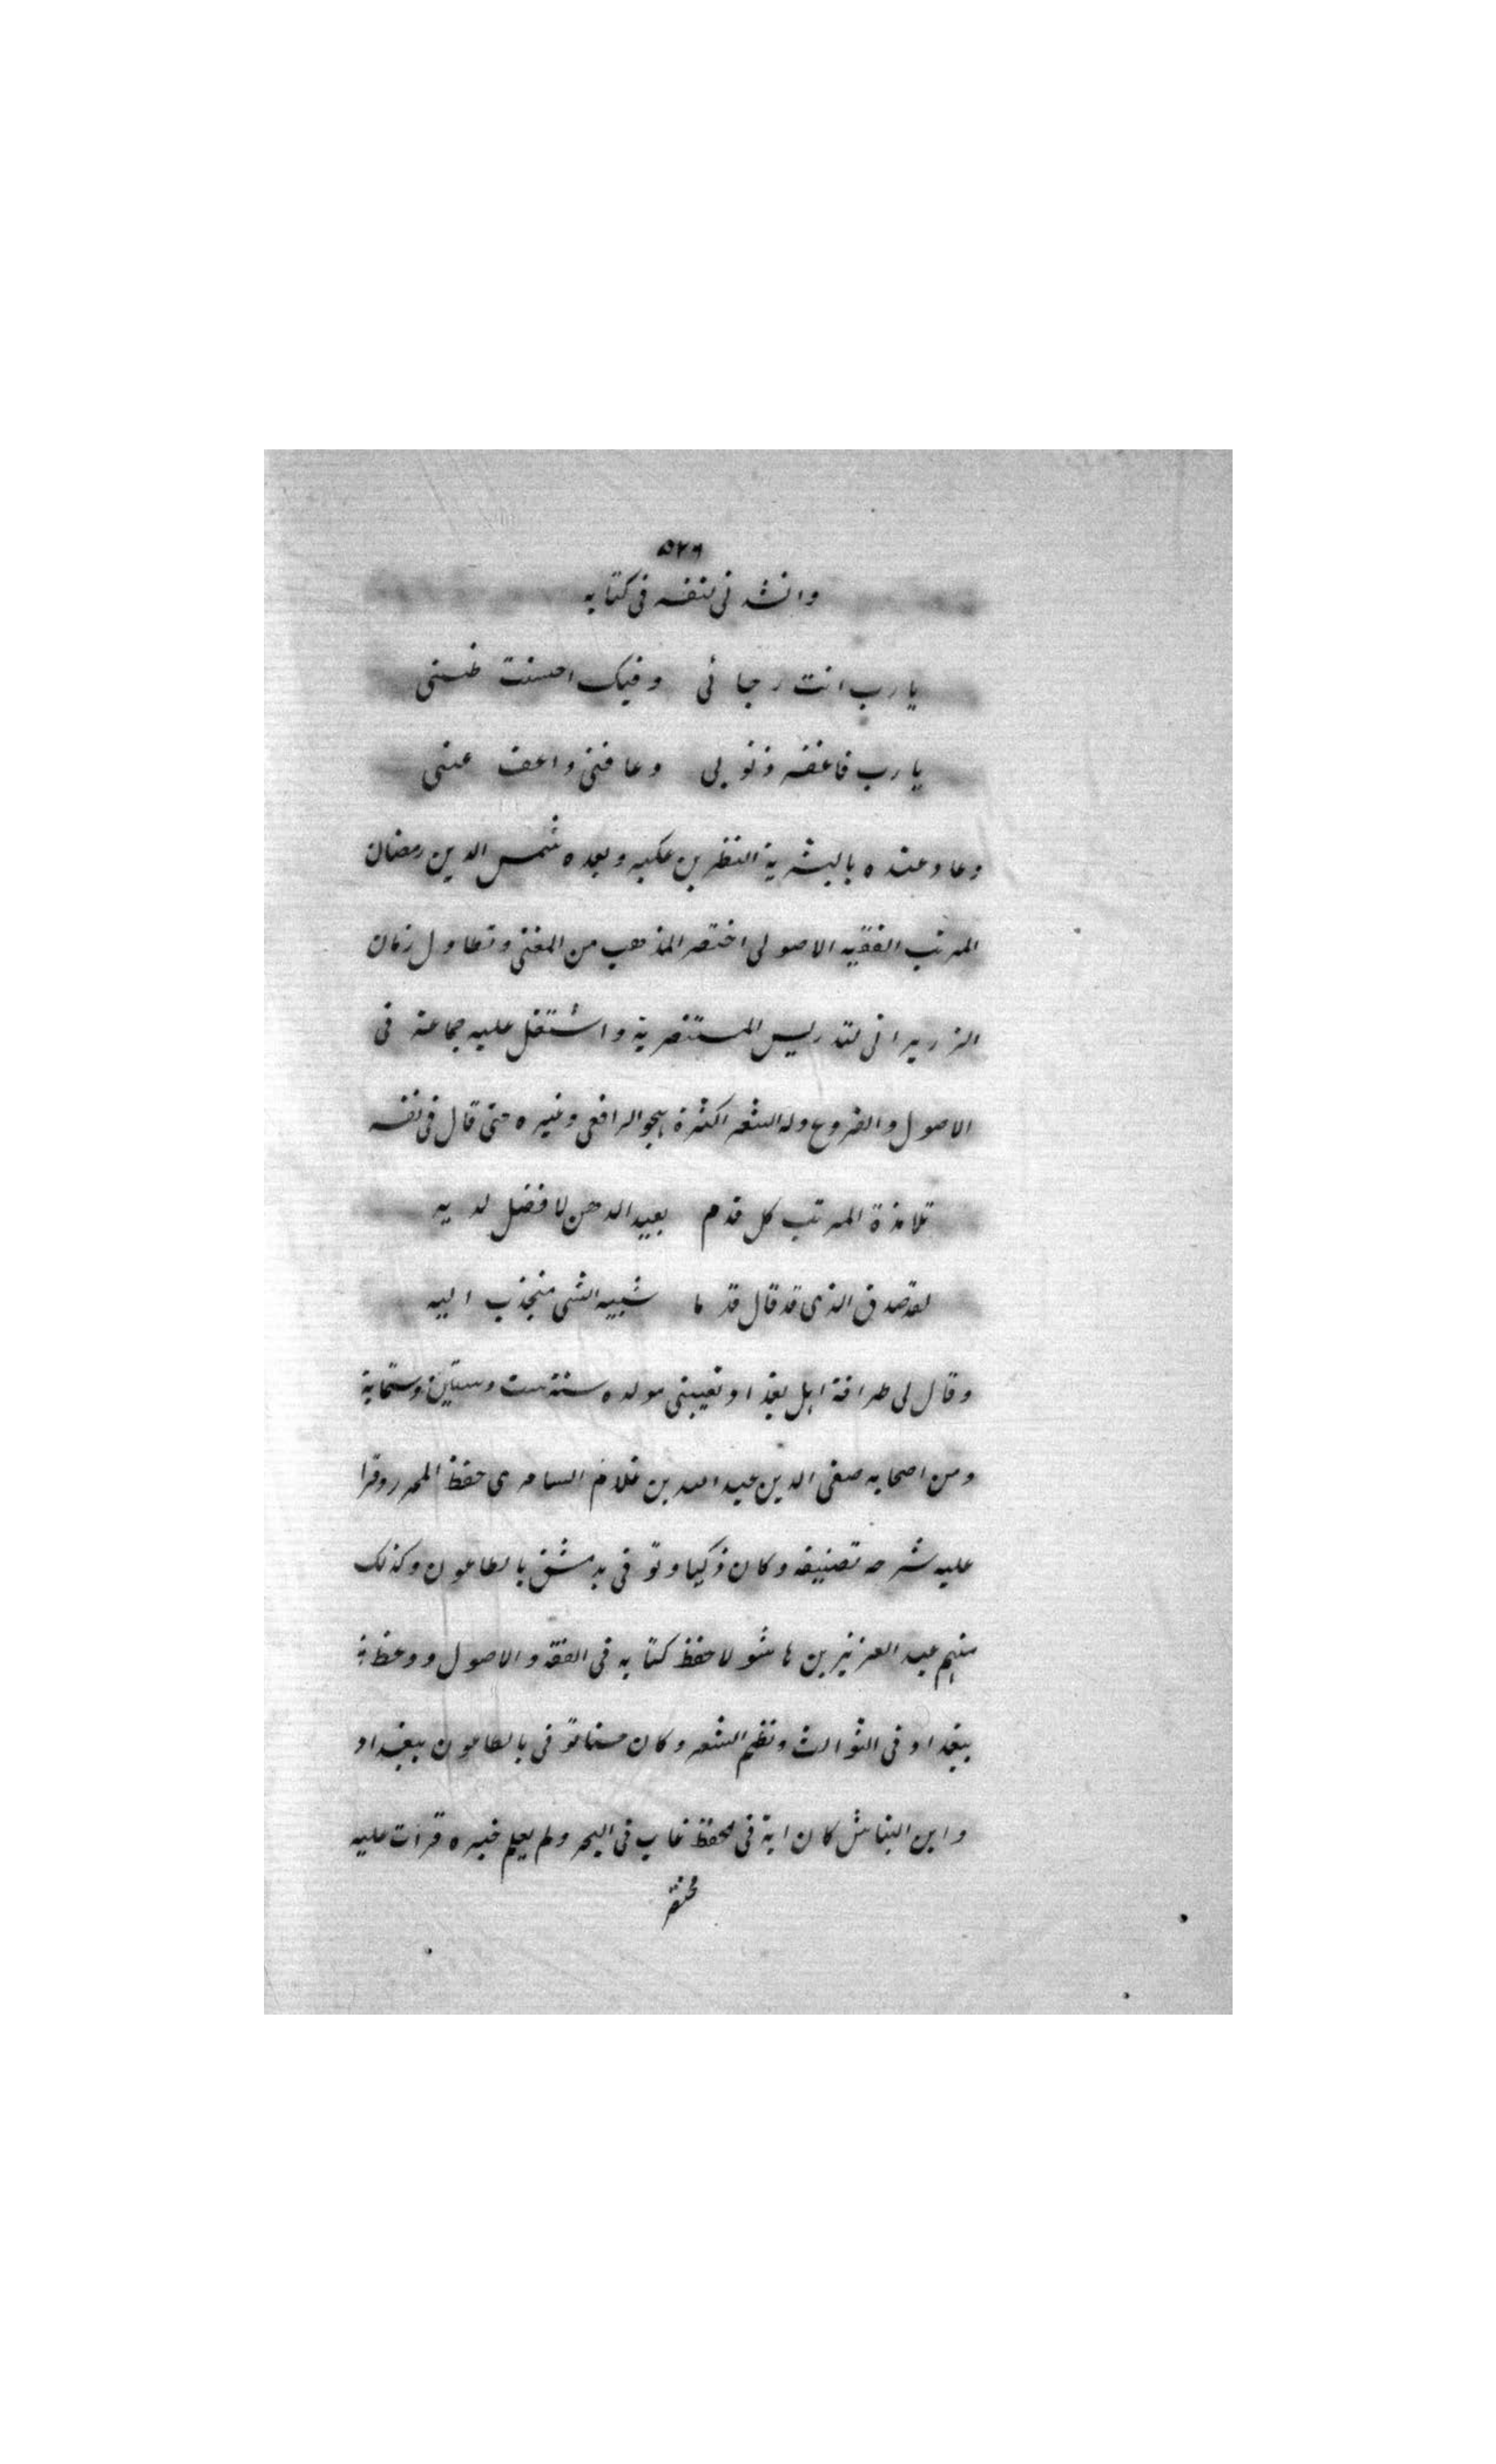 ٥٢٦
وانشدنى لنفسه فى كتابه
يارب انت رجائى وفيك احسنت ظنى
يارب فاغفر ذنوبى وعافنى واعف عنى
وعاد عنده بالبشرية النظر بن عكبر وبعده شمس الدين رمضان
المرتب الفقيه الاصولى اختصر المذهب من المغنى وتطاول زمان
الزريرانى لتدريس المستنصرية واشتغل عليه جماعة فى
الاصول والفروع وله الشعر الكثرة بهجو الرافعى وغيره حتى قال فى نفسه
تلامذة المرتب كل فدم بعيد الذهن لا فضل لديه
لقد صدق الذى قد قال قدما شبيه الشى منجذب اليه
وقال لى طرافة اهل بغداد تعيبنى مولده سنة ست وستين وستماية
ومن اصحابه صفى الدين عبد الله بن غلام السامرى حفظ المحرر وقرا
عليه شرحه تصنيفه وكان ذكيا وتوفى بدمشق بالطاعون وكذلك
منهم عبد العزيز بن هاشولا حفظ كتابه فى الفقه والاصول ووعظ
ببغداد فى الثوالث ونظم الشعر وكان حسنا توفى بالطاعون ببغداد
وابن النباش كان اية فى الحفظ غاب فى البحر ولم يعلم خبره قرات عليه
مختصر